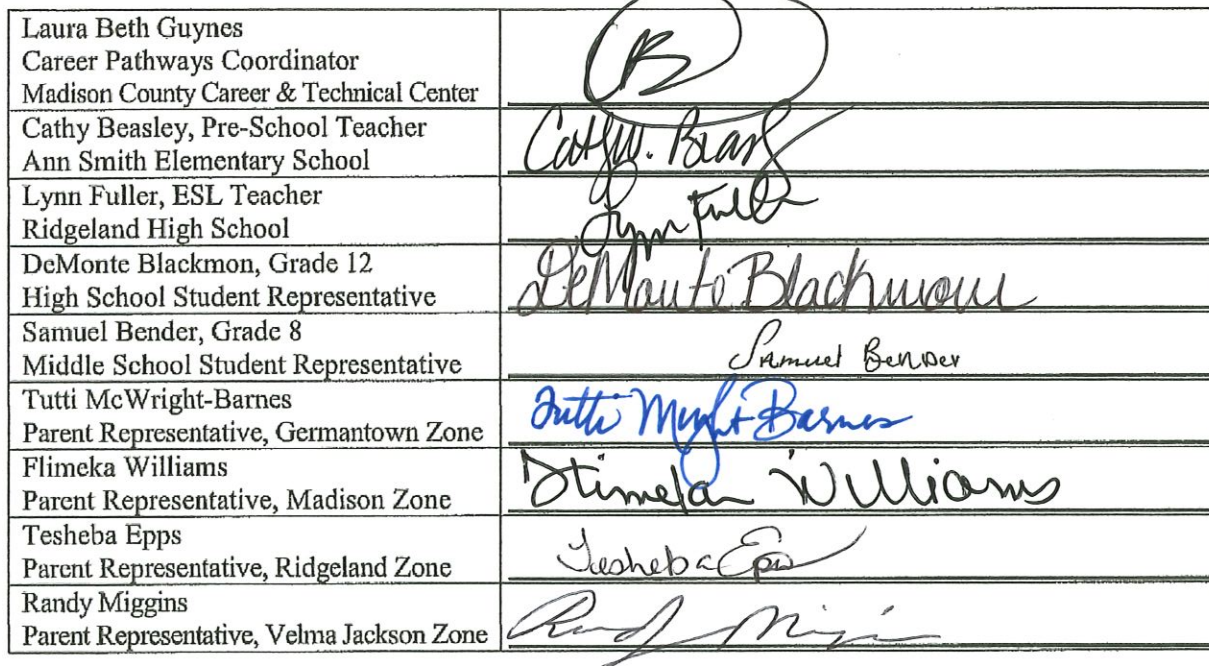 Laura Beth Guynes
Career Pathways Coordinator
Madison County Career & Technical Center
Cathy Beasley, Pre-School Teacher
Ann Smith Elementary School
Cathy W. Beasley
Lynn Fuller, ESL Teacher
Ridgeland High School
Lynn Fuller
DeMonte Blackmon, Grade 12
High School Student Representative
DeMonte Blackmon
Samuel Bender, Grade 8
Middle School Student Representative
Samuel Bender
Tutti McWright-Barnes
Parent Representative, Germantown Zone
Tutti McWright-Barnes
Flimeka Williams
Parent Representative, Madison Zone
Flimeka Williams
Tesheba Epps
Parent Representative, Ridgeland Zone
Tesheba Epps
Randy Miggins
Parent Representative, Velma Jackson Zone
Randy Miggins